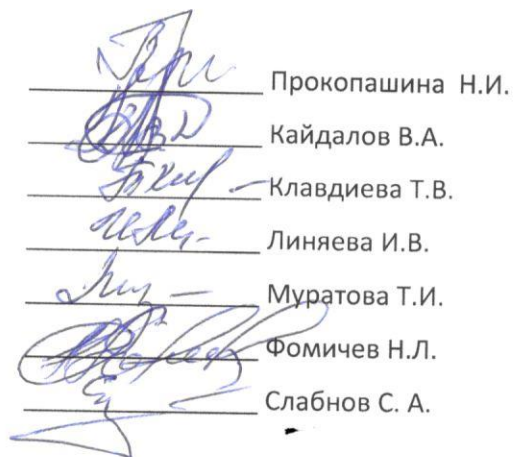 Прокопашина Н.И.
Кайдалов В.А.
Клавдиева Т.В.
Линяева И.В.
Муратова Т.И.
Фомичев Н.Л.
Слабнов С. А.